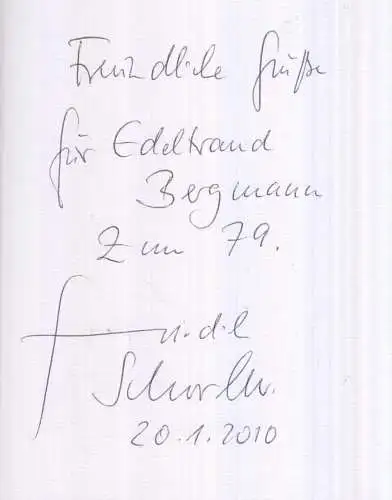 Freundliche Grüße
für Edeltraud
Bergmann
Zum 79.
Friedel
Schorl
20.1.2010